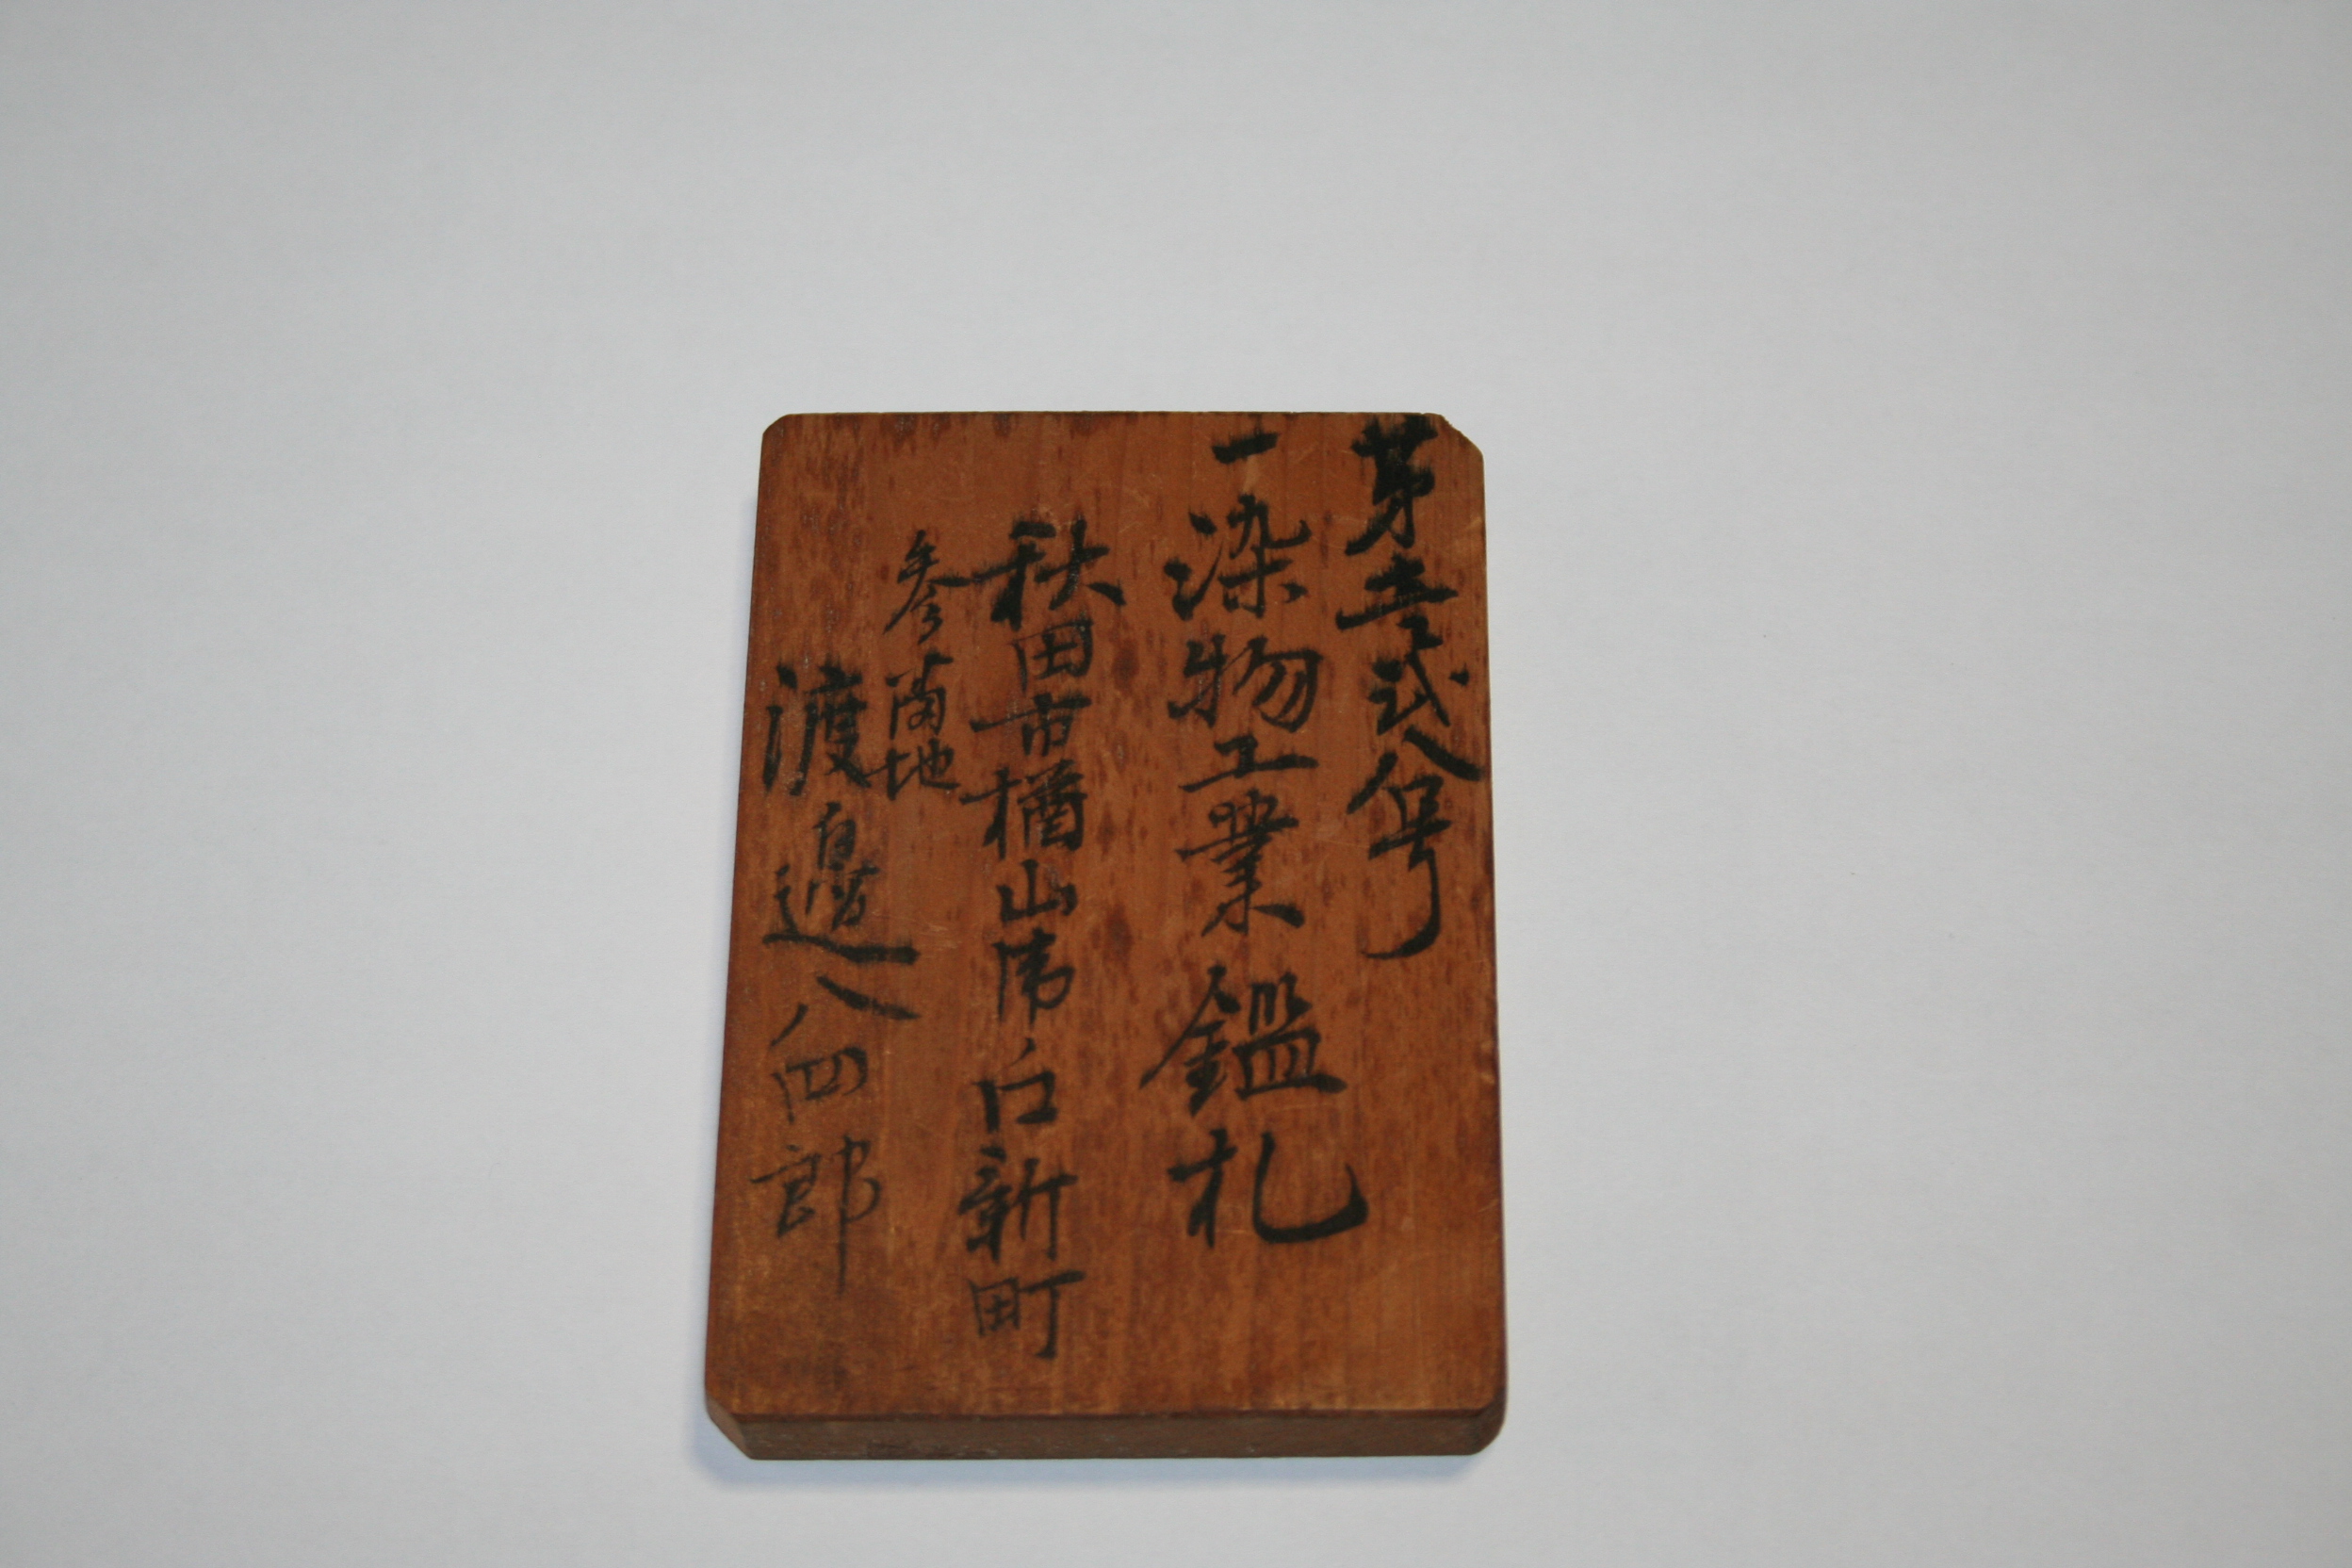 第壱弐八号
一染物工業鑑札
秋田市楢山乕ノ口新町
参番地
渡邊八四郎